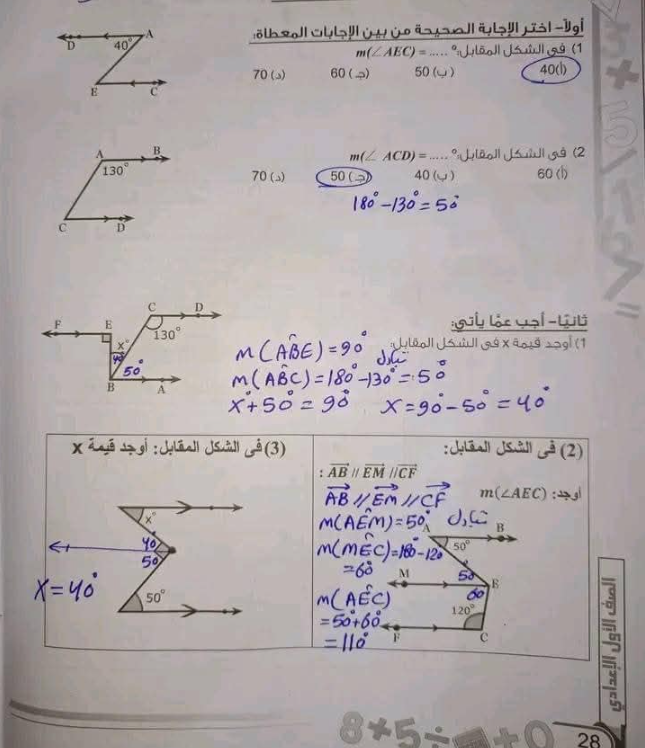 أولاً- اختر الإجابة الصحيحة من بين الإجابات المعطاة:
1) في الشكل المقابل: m(∠AEC) = ..... °
(أ) 40 (ب) 50 (جـ) 60 (د) 70
D A 40° E C
2) في الشكل المقابل: m(∠ ACD) = ..... °
(أ) 60 (ب) 40 (جـ) 50 (د) 70
180° - 130° = 50°
A B 130° C D
ثانيًا- أجب عمّا يأتي:
1) أوجد قيمة x في الشكل المقابل:
F E C D x° 130° 40° 50° B A
m(AB̂E) = 90°
تبادل
m(AB̂C) = 180° - 130° = 50°
x° + 50° = 90° x = 90° - 50° = 40°
(2) في الشكل المقابل:
AB // EM // CF :
أوجد: m(∠AEC)
AB // EM // CF
m(AÊM) = 50° تبادل
m(MÊC) = 180° - 120°
= 60°
m(AÊC)
= 50° + 60°
= 110°
A B 50° M 50 E 60 120° F C
(3) في الشكل المقابل: أوجد قيمة x
x° 40 50 50°
x = 40°
الصف الأول الإعدادي
8 + 5 ÷ + 0
28